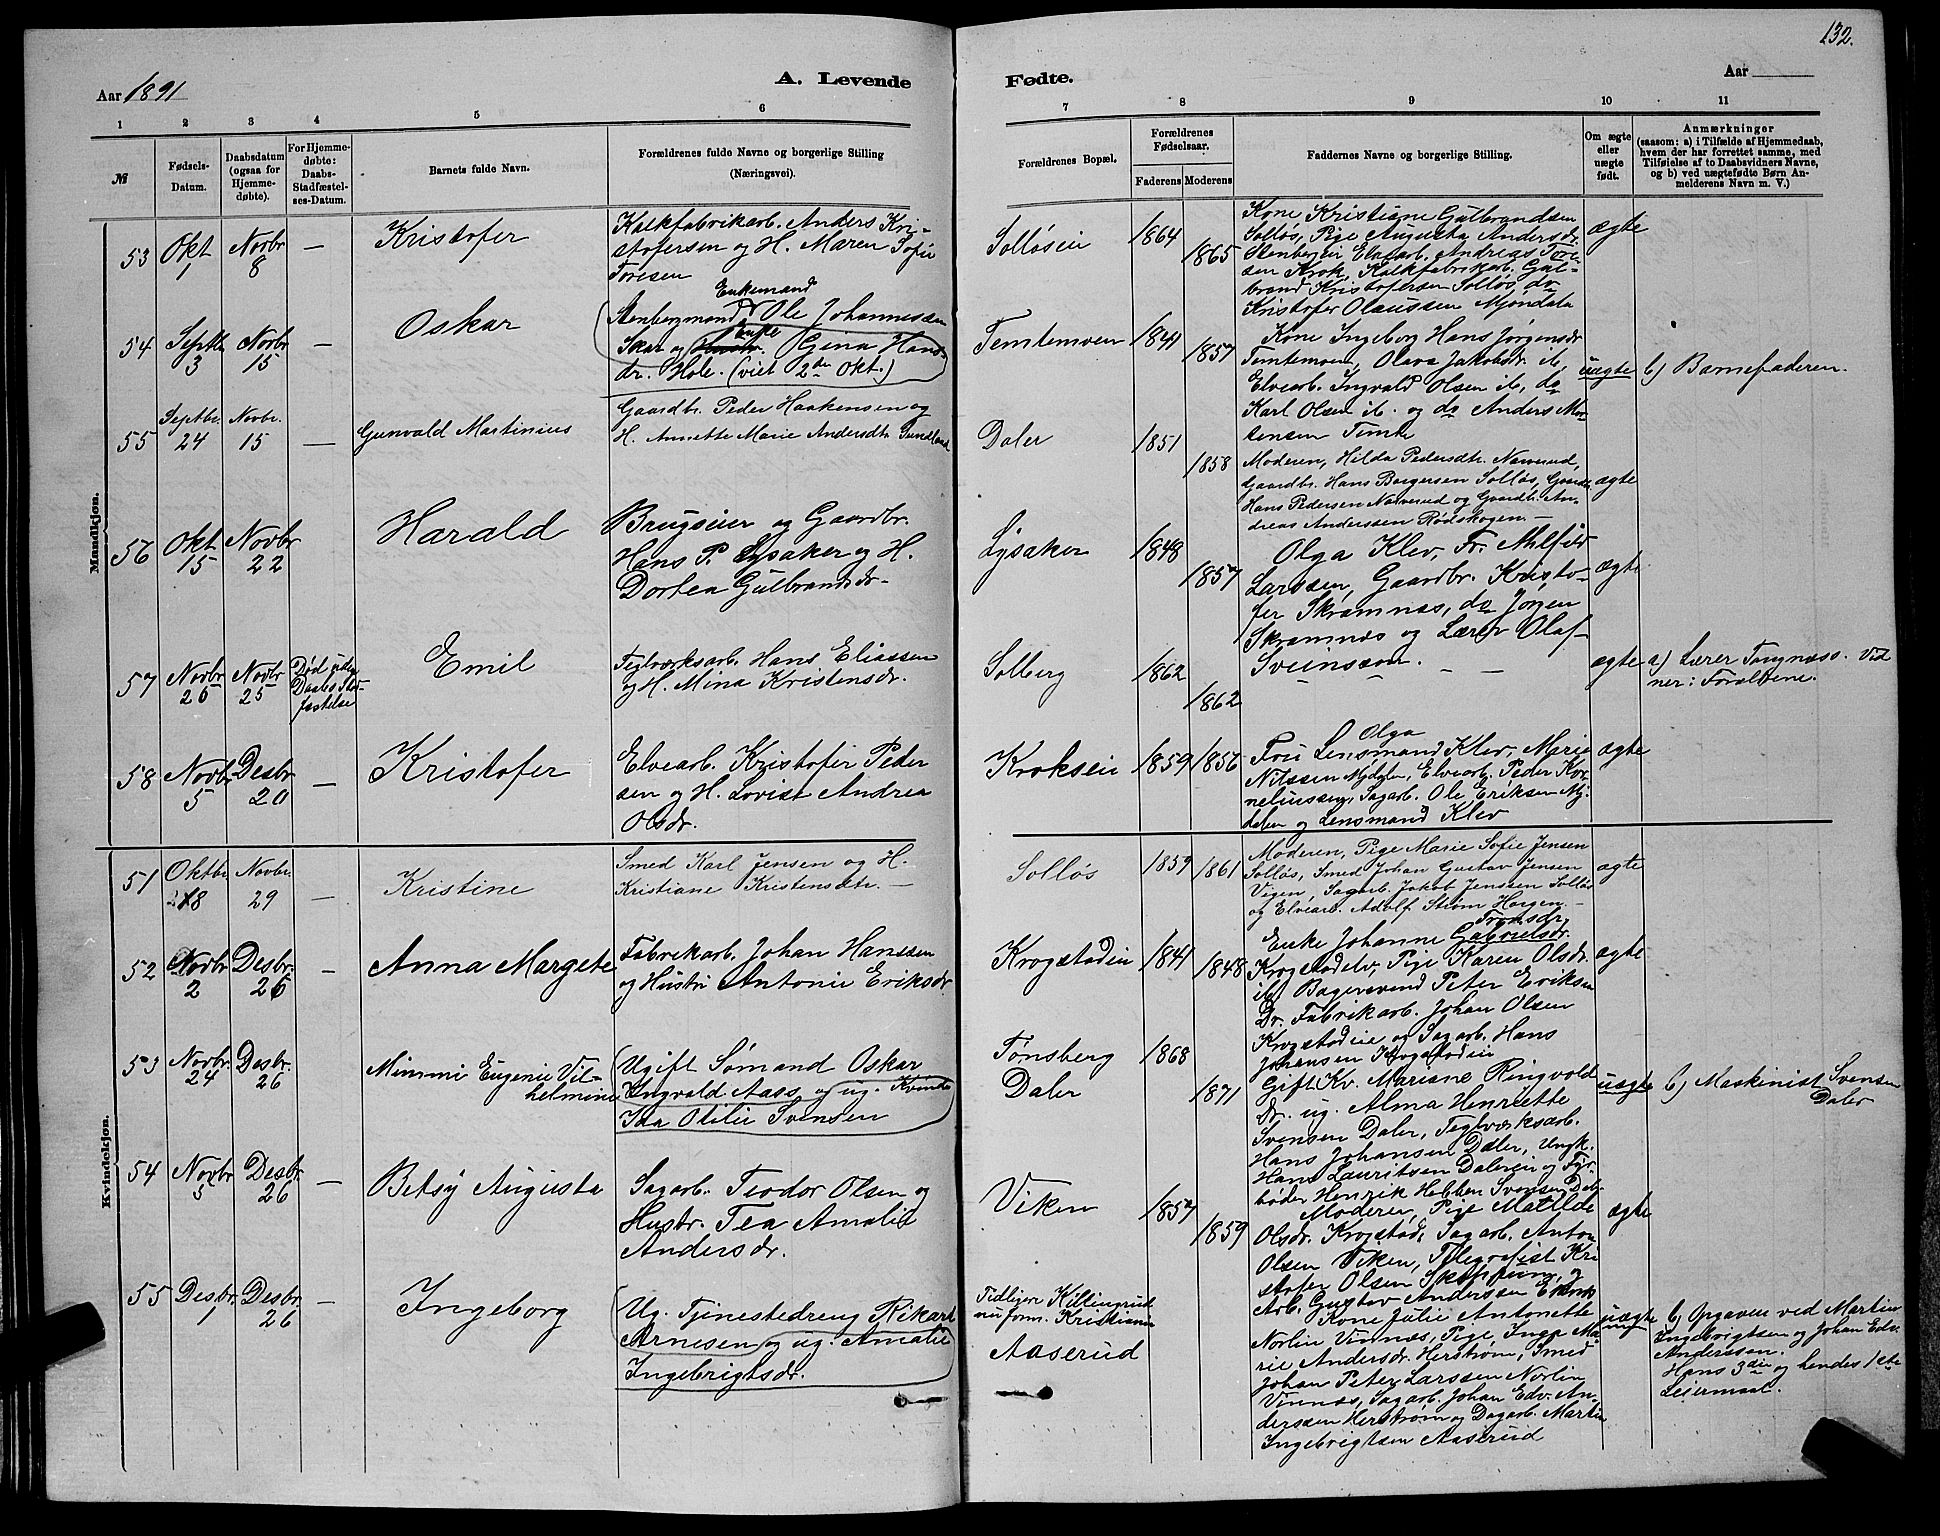 132.
Aar 1891
A. Levende
Fødte.
Aar
1
2
3
4
5
6
7
8
9
10
11
№
Fødsels-
Datum.
Daabsdatum
(ogsaa for
Hjemme-
døbte).
For Hjemme-
døbte:
Daabs-
Stadfæstel-
ses-Datum.
Barnets fulde Navn.
Forældrenes fulde Navne og borgerlige Stilling
(Næringsvei).
Forældrenes Bopæl.
Forældrenes
Fødselsaar.
Faderens
Moderens
Faddernes Navne og borgerlige Stilling.
Om ægte
eller
uægte
født.
Anmærkninger
(saasom: a) i Tilfælde af Hjemmedaab,
hvem der har forrettet samme, med
Tilføielse af to Daabsvidners Navne,
og b) ved uægtefødte Børn An-
melderens Navn m. V.)
Mandkjøn.
53
Okt
1
Novbr
8
—
Kristofer
Kalkfabrikarb. Anders Kri-
stofersen og H. Maren Sofie
Toresen
Solløseie
1864
1865
Kone Kristiane Gulbrandsen
Solløs, Pige Augusta Andersdr.
Stenbergeie Elvearb. Andreas Tore-
sen Krok, Kalkfabrikarb. Gul-
brand Kristofersen Solløs, do
Kristofer Olaussen Mjøndalen
ægte
54
Septbr
3
Novbr
15
—
Oskar
Enkemand
Stenbergmand Ole Johannessen
Skar og Enke Gina Hans-
dr. Hole. (viet 2de Okt.)
Temtemoen
1841
1857
Kone Ingeborg Hans Jørgensdr
Temtemoen, Olava Jakobsdr. ib,
Elvearb. Ingvald Olsen ib, do
Karl Olsen ib. og do Anders Mor-
tensen Temte
uægte
b) Barnefaderen.
55
Septbr.
24
Novbr.
15
—
Gunvald Martinius
Gaardbr. Peder Haakensen og
H. Annette Marie Andersdtr. Sundland
Daler
1851
1858
Moderen, Hilda Pedersdtr. Narverud,
Gaardbr. Hans Borgersen Solløs, Gaardbr.
Hans Pedersen Narverud og Gaardbr. An-
dreas Anderssen Rødskogen. —
ægte
56
Okt
15
Novbr
22
Harald
Brugseier og Gaardbr.
Hans P. Lysaker og H.
Dortea Gulbrandsdr.
Lysaker
1848
1857
Olga Klev, Fr. Milfrid
Larssen, Gaardbr. Kristo-
fer Skramnæs, do Jørgen
Skramnæs og Lærer Olaf
Sveinsson.
ægte
57
Novbr
25
Novbr
25
Død uden
Daabs Stad-
fæstelse
Emil
Teglværksarb. Hans Eliassen
og H. Mina Kristensdr.
Solberg
1862
1862
— — —
ægte
a) Lærer Tangnæss. Vid
ner: Forældrene.
58
Novbr
5
Desbr
20
—
Kristofer
Elvearb. Kristofer Peder
sen og H. Lovise Andrea
Olsdr.
Krokseie
1859
1856
Olga
Fru Lensmand Klev, Marie
Nilssen Mjdalen, Elvearb. Peder Kor-
neliussen, Sagarb. Ole Eriksen Mj.
dalen og Lensmand Klev
ægte
Kvindekjøn.
51
Oktbr.
28
Novbr.
29
—
Kristine
Smed Karl Jensen og H.
Kristiane Kristensdtr. —
Solløs
1859
1861
Moderen, Pige Marie Sofie Jensen
Solløs, Smed Johan Gustav Jensen
Vegen, Sagarb. Jakob Jenssen Solløs
og Elvearb. Adolf Strøm Horgen. —
ægte
52
Novbr
2
Desbr.
26
—
Anna Margete
Fabrikarb. Johan Hanssen
og Hustr. Antonie Eriksdr.
Krogstadeie
1841
1848
Tronsdr.
Enke Johanne Gabrielsdr.
Krogstadelv, Pige Karen Olsdr.
ib Bagersvend Peter Eriksen
Dr. Fabrikarb. Johan Olsen
Krogstadeie og Sagarb. Hans
Johansen Krogstadeie
ægte
53
Novbr.
24
Desbr.
26
Mimmi Eugenie Vil-
helmine
Ugift Sømand Oskar
Ingvald Aass og ug. Kvinde
Ida Otilie Svensen
Tønsberg
Daler
1868
1871
Gift Kv. Mariane Ringvold
Dr. ug. Alma Henriette
Svensen Daler, Teglværksarb.
Hans Johansen Daler, Ungk.
Hans Lauritsen Dalereie og Fyr-
bøder Henrik Svensen
uægte
b) Maskinist Svensen
Daler
54
Novbr
5
Desbr.
26
—
Betsy Augusta
Sagarb. Teodor Olsen og
Hustr. Tea Amalie
Andersdr.
Viken
1857
1859
Moderen, Pige Matilde
Olsdr. Krogstad, Sagarb. Anton
Olsen Viken, Telegrafist Kri
stofer Olsen Skoppum, og
Arb. Gustav Anderssen
ægte
55
Desbr.
1
Desbr.
26
—
Ingeborg
Ug. Tjenestedreng Rikard
Arnesen og ug. Amalie
Ingebrigtsdr.
Tidligere Killingrud
nu form. Kristiania
Aaserud
Kone Julie Antonette
Norlin Vinnæs, Pige Inga Ma-
rie Andersdr. Herstrøm, Smed
Johan Peter Larssen Norlin
Vinnæs, Sagarb. Johan Edv. An-
derssen Herstrøm og Dagarb. Martin
Ingebrigtsen Aaserud
uægte
b) Opgaven ved Martin
Ingebrigtsen og Johan Edv.
Anderssen.
Hans 3die og hendes 1ste
Leiermaal.